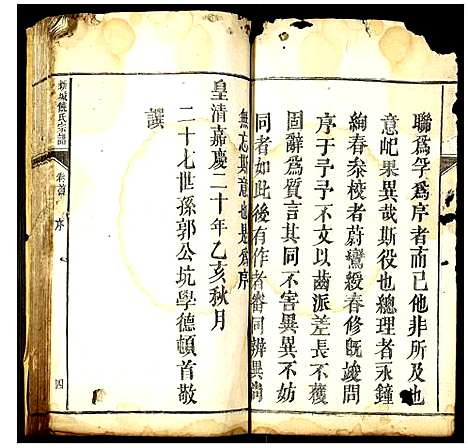 聯為孚為序者而已他非所及也
意屺果異哉斯役也總理者永鐘
絢春叅校者蔚鸞綬春修旣竣問
序于予予不文以齒派差長不獲
固辭為質言其同不害異異不妨
同者如此後有作者審同辨異尚
無忘斯意也是為序
皇清嘉慶二十年乙亥秋月
二十七世孫郭公坑學德頓首敬
譔
新城饒氏宗譜
卷首
序
四